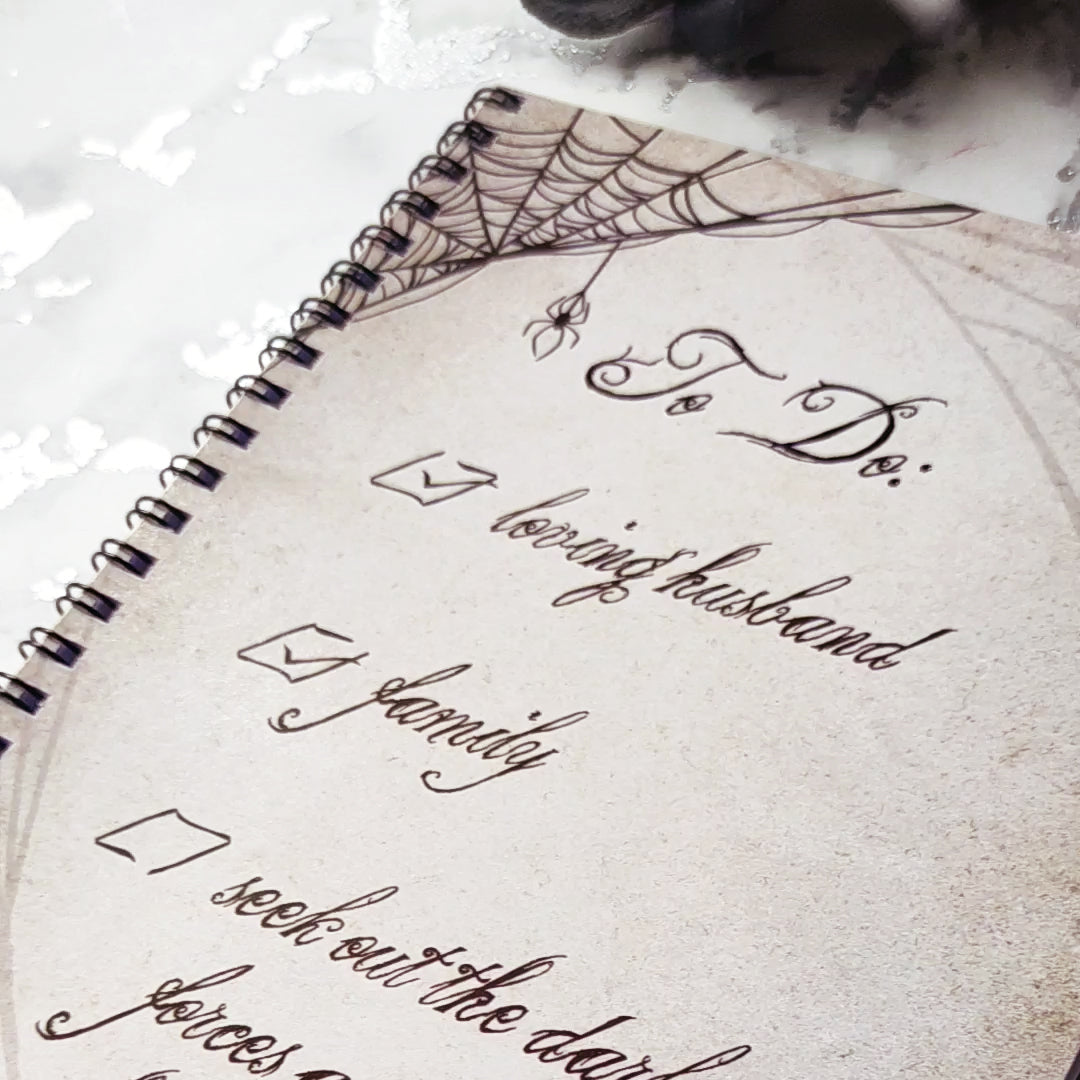 To Do:
loving husband
family
seek out the dark
forces